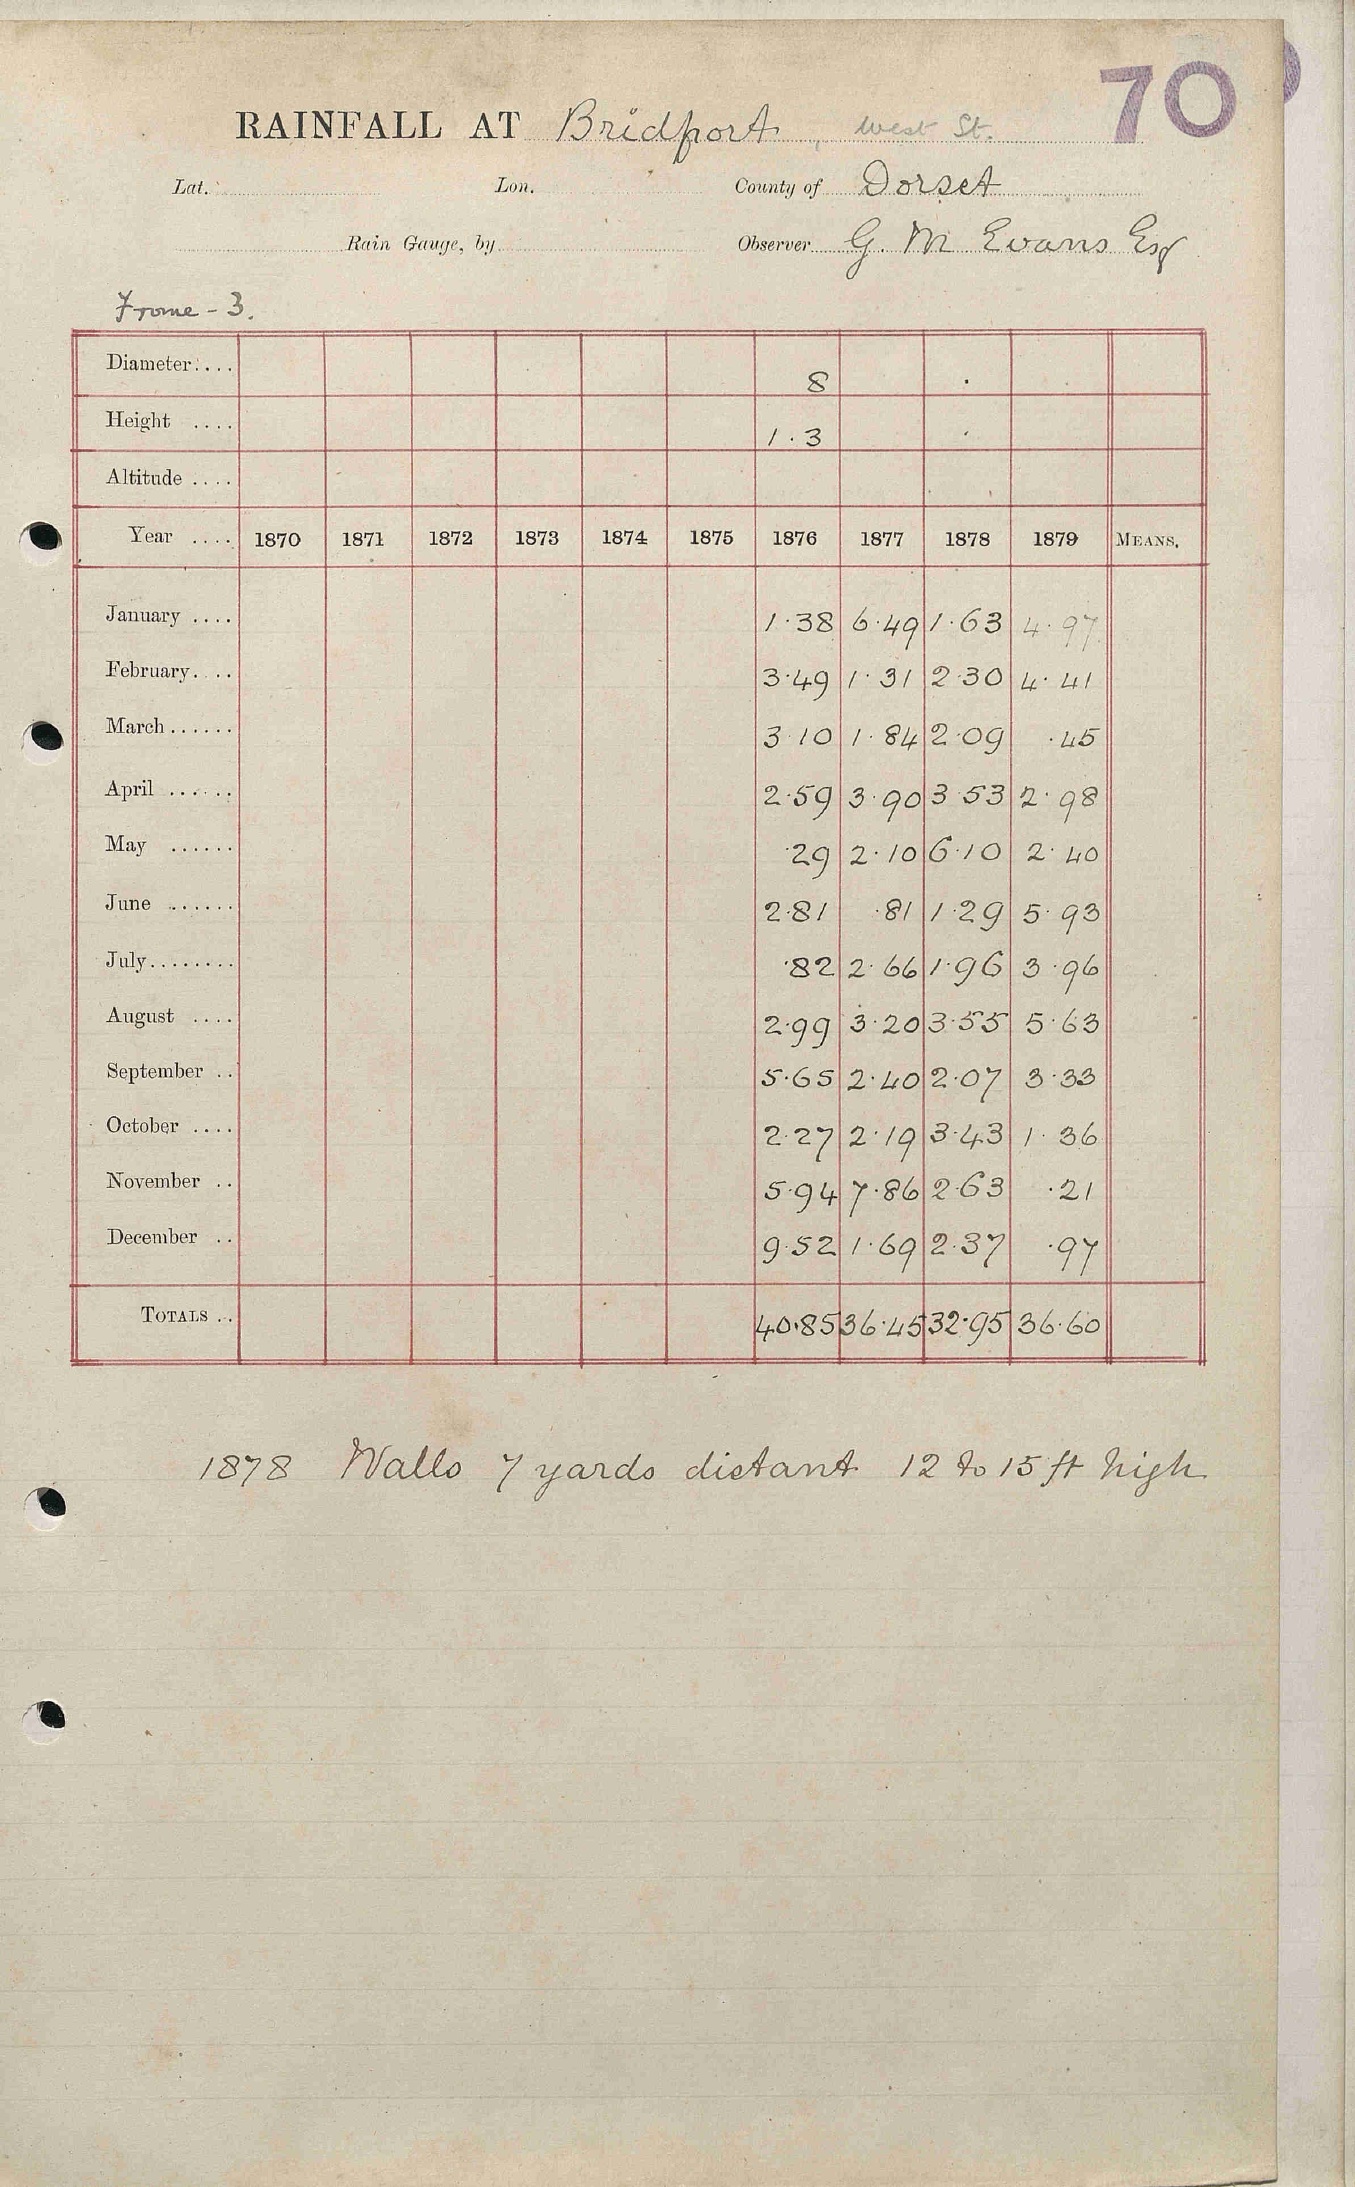 70
RAINFALL AT Bridport, West St.
Lat. Lon. County of Dorset
Rain Gauge, by Observer G. M Evans Esq
Frome - 3.
Diameter.... 8
Height .... 1.3
Altitude ....
Year .... 1870 1871 1872 1873 1874 1875 1876 1877 1878 1879 MEANS.
January .... 1.38 6.49 1.63 4.97
February.... 3.49 1.31 2.30 4.41
March...... 3.10 1.84 2.09 .45
April ...... 2.59 3.90 3.53 2.98
May ...... .29 2.10 6.10 2.40
June ...... 2.81 .81 1.29 5.93
July........ .82 2.66 1.96 3.96
August .... 2.99 3.20 3.55 5.63
September .. 5.65 2.40 2.07 3.33
October .... 2.27 2.19 3.43 1.36
November .. 5.94 7.86 2.63 .21
December .. 9.52 1.69 2.37 .97
TOTALS .. 40.85 36.45 32.95 36.60
1878 Walls 7 yards distant 12 to 15 ft high